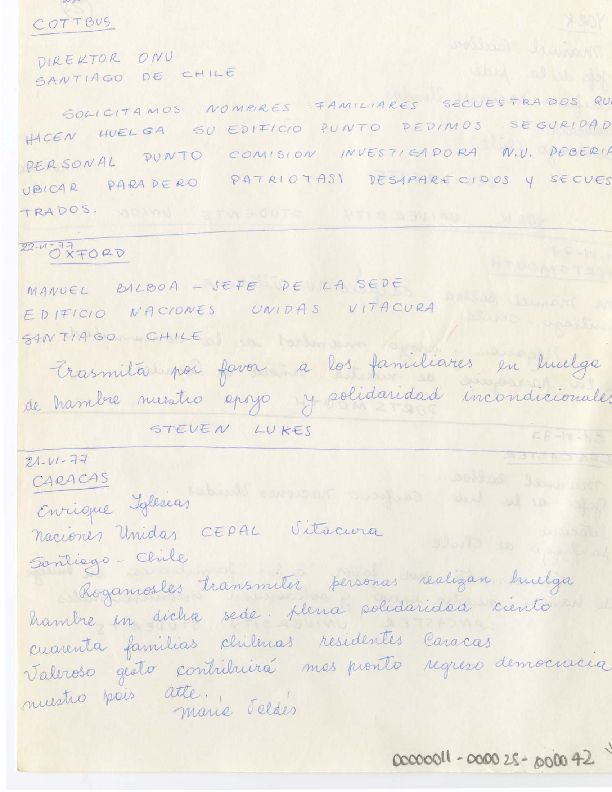 COTTBUS
DIREKTOR ONU
SANTIAGO DE CHILE
SOLICITAMOS NOMBRES FAMILIARES SECUESTRADOS QUE
HACEN HUELGA SU EDIFICIO PUNTO PEDIMOS SEGURIDAD
PERSONAL PUNTO COMISION INVESTIGADORA N.U. DEBERIA
UBICAR PARADERO PATRIOTAS) DESAPARECIDOS Y SECUES
TRADOS.
22-VI-77
OXFORD
MANUEL BALBOA - JEFE DE LA SEDE
EDIFICIO NACIONES UNIDAS VITACURA
SANTIAGO CHILE
Trasmita por favor a los familiares en huelga
de hambre nuestro apoyo y solidaridad incondicionales
STEVEN LUKES
21-VI-77
CARACAS
Enrique Iglesias
Naciones Unidas CEPAL Vitacura
Santiago - Chile
Rogamosles transmitir personas realizan huelga
hambre en dicha sede plena solidaridad ciento
cuarenta familias chilenas residentes Caracas
Valeroso gesto contribuirá mas pronto regreso democracia
nuestro pais Atte.
María Valdés
00000011-000025-000042